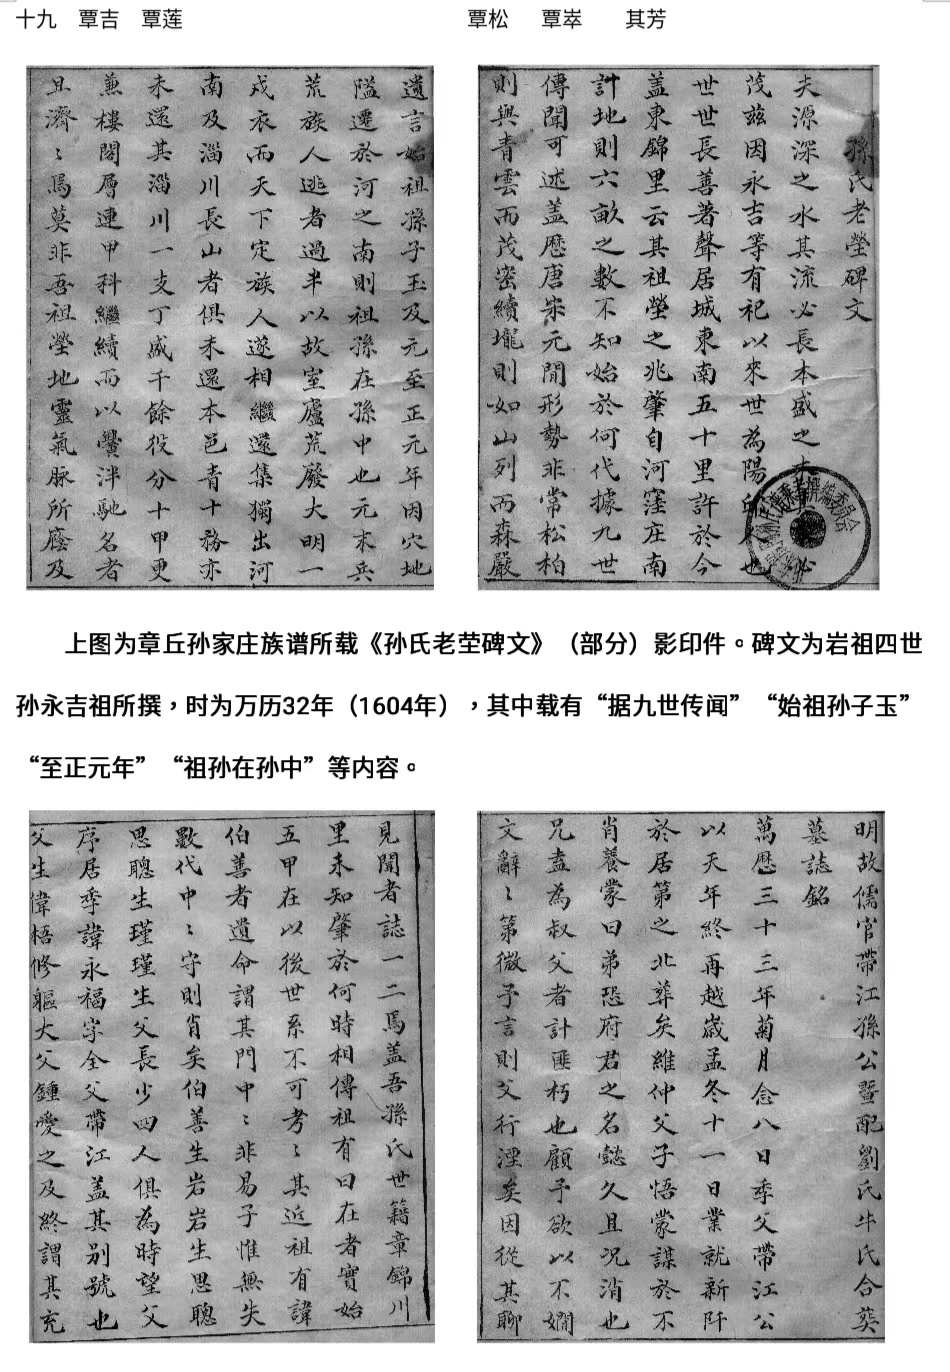 十九　覃吉　覃莲
覃松　覃崒　其芳
孫氏老塋碑文
夫源深之水其流必長本盛之木
茂茲因永吉等有祀以來世為陽
世世長善著聲居城東南五十里許於今
盖東錦里云其祖塋之兆肇自河窪庄南
計地則六畝之數不知始於何代據九世
傳聞可述盖歷唐宋元間形勢非常松柏
則與青雲而茂密續壠則如山列而森嚴
遺言始祖孫子玉及元至正元年因穴地
隘遷於河之南則祖孫在孫中也元末兵
荒族人逃者過半以故室廬荒廢大明一
戎衣而天下定族人遂相繼還集獨出河
南及淄川長山者俱未還本邑青十務亦
未還其淄川一支丁盛千餘役分十甲更
兼樓閣層連甲科繼續而以黌泮馳名者
且濟〻焉莫非吾祖塋地靈氣脉所廕及
上图为章丘孙家庄族谱所载《孙氏老茔碑文》（部分）影印件。碑文为岩祖四世
孙永吉祖所撰，时为万历32年（1604年），其中载有“据九世传闻”“始祖孙子玉”
“至正元年”“祖孙在孙中”等内容。
明故儒官帶江孫公暨配劉氏牛氏合葬
墓誌銘
萬歷三十三年菊月念八日季父帶江公
以天年終再越歲孟冬十一日業就新阡
於居第之北葬矣維仲父子悟蒙謀於不
肖養蒙曰弟恐府君之名懿久且况消也
兄盍為叔父者計匪朽也顧予欲以不嫺
文辭〻第微予言則父行湮矣因從其聊
見聞者誌一二焉盖吾孫氏世籍章錦川
里未知肇於何時相傳祖有曰在者實始
五甲在以後世系不可考〻其近祖有諱
伯善者遺命謂其門中〻非易子惟無失
數代中〻守則肖矣伯善生岩岩生思聰
思聰生瑾瑾生父長少四人俱為時望父
序居季諱永福字全父帶江盖其别號也
父生偉梧修軀大父鍾愛之及終謂其充